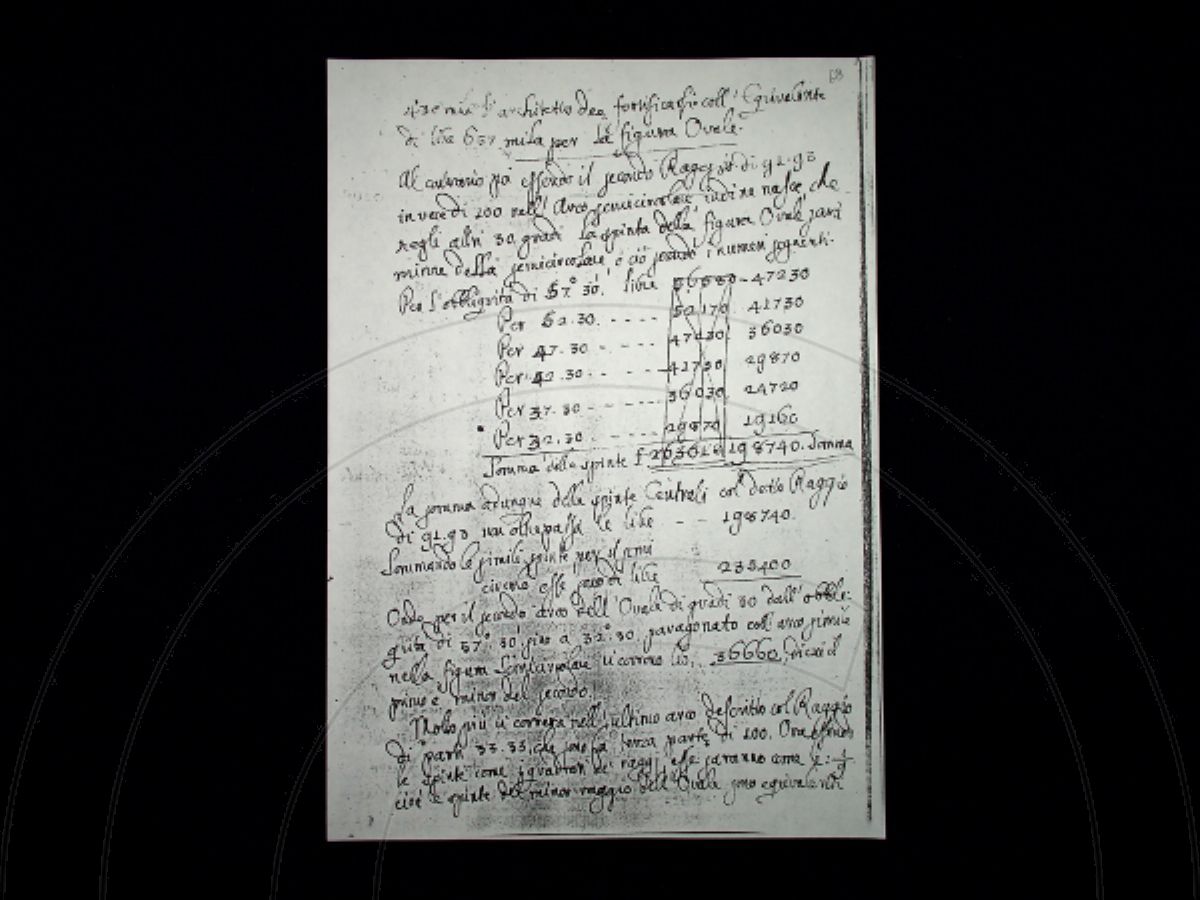 68
architetto fortificasse coll' Equivalente
di lire 637 mila per la figura Ovale.
Al contrario poi essendo il secondo Raggio di 91.98
in vece di 100 nell' Arco semicircolare indi ne nasce, che
negli altri 30 gradi la spinta della figura Ovale sarà
minore della semicircolare e ciò secondo i numeri seguenti.
Per l'obbliquità di 57.° 30.' libre 56680 - 47230
Per 52.30. - - - - 52170 41730
Per 47.30 - - - - 47230 36030
Per 42.30 - - - - 41730 29870
Per 37.30 - - - - 36030 24720
Per 32.30 - - - - 29870 19160
Somma della spinte 198740. Somma
La somma adunque delle spinte Centrali col detto Raggio
di 91.98 non oltrepassa le libre - - 198740.
Sommando le simili spinte per il semi
circolo esse sono di libre 235400
Onde per il secondo arco dell' Ovale di gradi 30 dall' obbli-
quità di 57.° 30.' sino a 32.° 30. paragonato coll' arco simile
nella figura Semicircolare vi corrono lib. 36660,
primo è minor del secondo.
Molto più vi correrà nell' ultimo arco descritto col Raggio
di parti 33.33, che sono la terza parte di 100. Onde essendo
le spinte come i quadrati de' raggi, esse saranno come
cioè le spinte del minor raggio dell' Ovale sono equivalenti